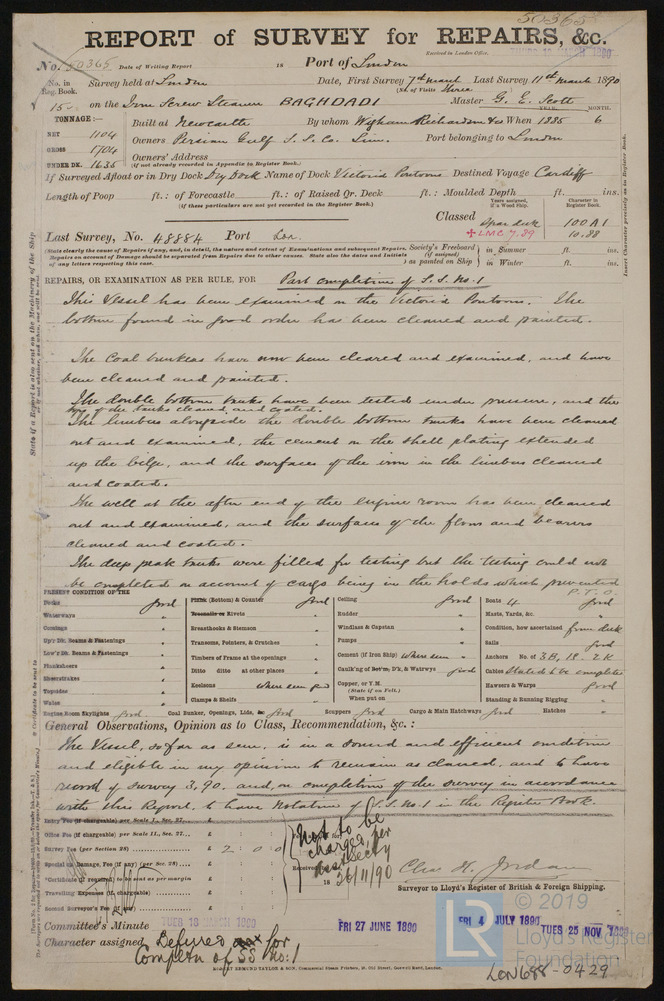 50365
REPORT of SURVEY for REPAIRS, &c.
Received in London Office, THURS 13 MARCH 1890
No. 50365 Date of Writing Report 18 Port of London
No. in Reg. Book. Survey held at London Date, First Survey 7th March Last Survey 11th March 1890
(No. of Visits Three)
15 on the Iron Screw Steamer BAGHDADI Master G. E. Scott
TONNAGE:— YEAR. MONTH.
NET 1104 Built at Newcastle By whom Wigham Richardson & Co When 1885 6
GROSS 1704 Owners Persian Gulf S. S. Co. Lim. Port belonging to London
UNDER DK. 1635 Owners' Address
(if not already recorded in Appendix to Register Book.)
If Surveyed Afloat or in Dry Dock Dry Dock Name of Dock Victoria Pontoons Destined Voyage Cardiff
Length of Poop ft.: of Forecastle ft.: of Raised Qr. Deck ft.: Moulded Depth ft. ins.
(if these particulars are not yet recorded in the Register Book.)
Years assigned, if a Wood Ship. Character in Register Book.
Classed Spar deck 100 A1
LMC 7.89 10.88
Last Survey, No. 48884 Port Lon.
(State clearly the cause of Repairs if any, and, in detail, the nature and extent of Examinations and subsequent Repairs. Repairs on account of Damage should be separated from Repairs due to other causes. State also the dates and initials of any letters respecting this case.
Society's Freeboard (if assigned) as painted on Ship in Summer ft. ins.
in Winter ft. ins.
REPAIRS, OR EXAMINATION AS PER RULE, FOR Part completion of S.S. No. 1
This Vessel has been examined on the Victoria Pontoons. The
bottom found in good order has been cleaned and painted.
The Coal bunkers have now been cleared and examined, and have
been cleaned and painted.
The double bottom tanks have been tested under pressure, and the
tops of the tanks cleaned, and coated.
The limbers alongside the double bottom tanks have been cleaned
out and examined, the cement on the shell plating extended
up the bilge, and the surfaces of the iron in the limbers cleaned
and coated.
The well at the after end of the engine room has been cleaned
out and examined, and the surfaces of the floors and bearers
cleaned and coated.
The deep peak tanks were filled for testing but the testing could not
be completed on account of cargo being in the holds which prevented
P.T.O.
PRESENT CONDITION OF THE
Decks good
Waterways "
Comings "
Up'r Dk. Beams & Fastenings "
Low'r Dk. Beams & Fastenings "
Plankshears "
Sheerstrakes "
Topsides "
Wales "
Plank (Bottom) & Counter good
Treenails or Rivets "
Breasthooks & Stemson "
Transoms, Pointers, & Crutches "
Timbers of Frame at the openings "
Ditto ditto at other places "
Keelsons where seen good
Clamps & Shelfs "
Ceiling good
Rudder "
Windlass & Capstan "
Pumps "
Cement (if Iron Ship) where seen "
Caulk'ng of Bot'm, D'k, & Watrwys good
Copper, or Y.M.
(State if on Felt.)
When put on
Boats 4 good
Masts, Yards, &c. "
Condition, how ascertained from deck
Sails good
Anchors No. of 3B, 1S, 2K
Cables Stated to be complete
Hawsers & Warps good
Standing & Running Rigging "
Engine Room Skylights good Coal Bunker, Openings, Lids, &c good Scuppers good Cargo & Main Hatchways good Hatches "
General Observations, Opinion as to Class, Recommendation, &c.:
The Vessel, so far as seen, is in a sound and efficient condition
and eligible in my opinion to remain as classed, and to have
record of survey 3.90. and, on completion of the survey in accordance
with this Report, to have Notation of S.S. No. 1 in the Register Book.
Entry Fee (if chargeable) per Scale I., Sec. 27... £ : :
Office Fee (if chargeable) per Scale II., Sec. 27... £ : :
Survey Fee (per Section 28) £ 2 : 0 : 0
Special or Damage Fee (if any) (per Sec. 28) £ : :
Certificate (if required) to be sent as per margin £ : :
Travelling Expenses (if chargeable) £ : :
Second Surveyor's Fee (if any) £ : :
Not to be charged, per Assst Secty
26/11/90
Chas H. Jordan
Surveyor to Lloyd's Register of British & Foreign Shipping.
Committee's Minute TUES 18 MARCH 1890 FRI 27 JUNE 1890 FRI 4 JULY 1890 TUES 25 NOV 1890
Character assigned Deferred for
Completn of SS no: 1
© 2019
LR
Lloyd's Register
Foundation
LON688-0429